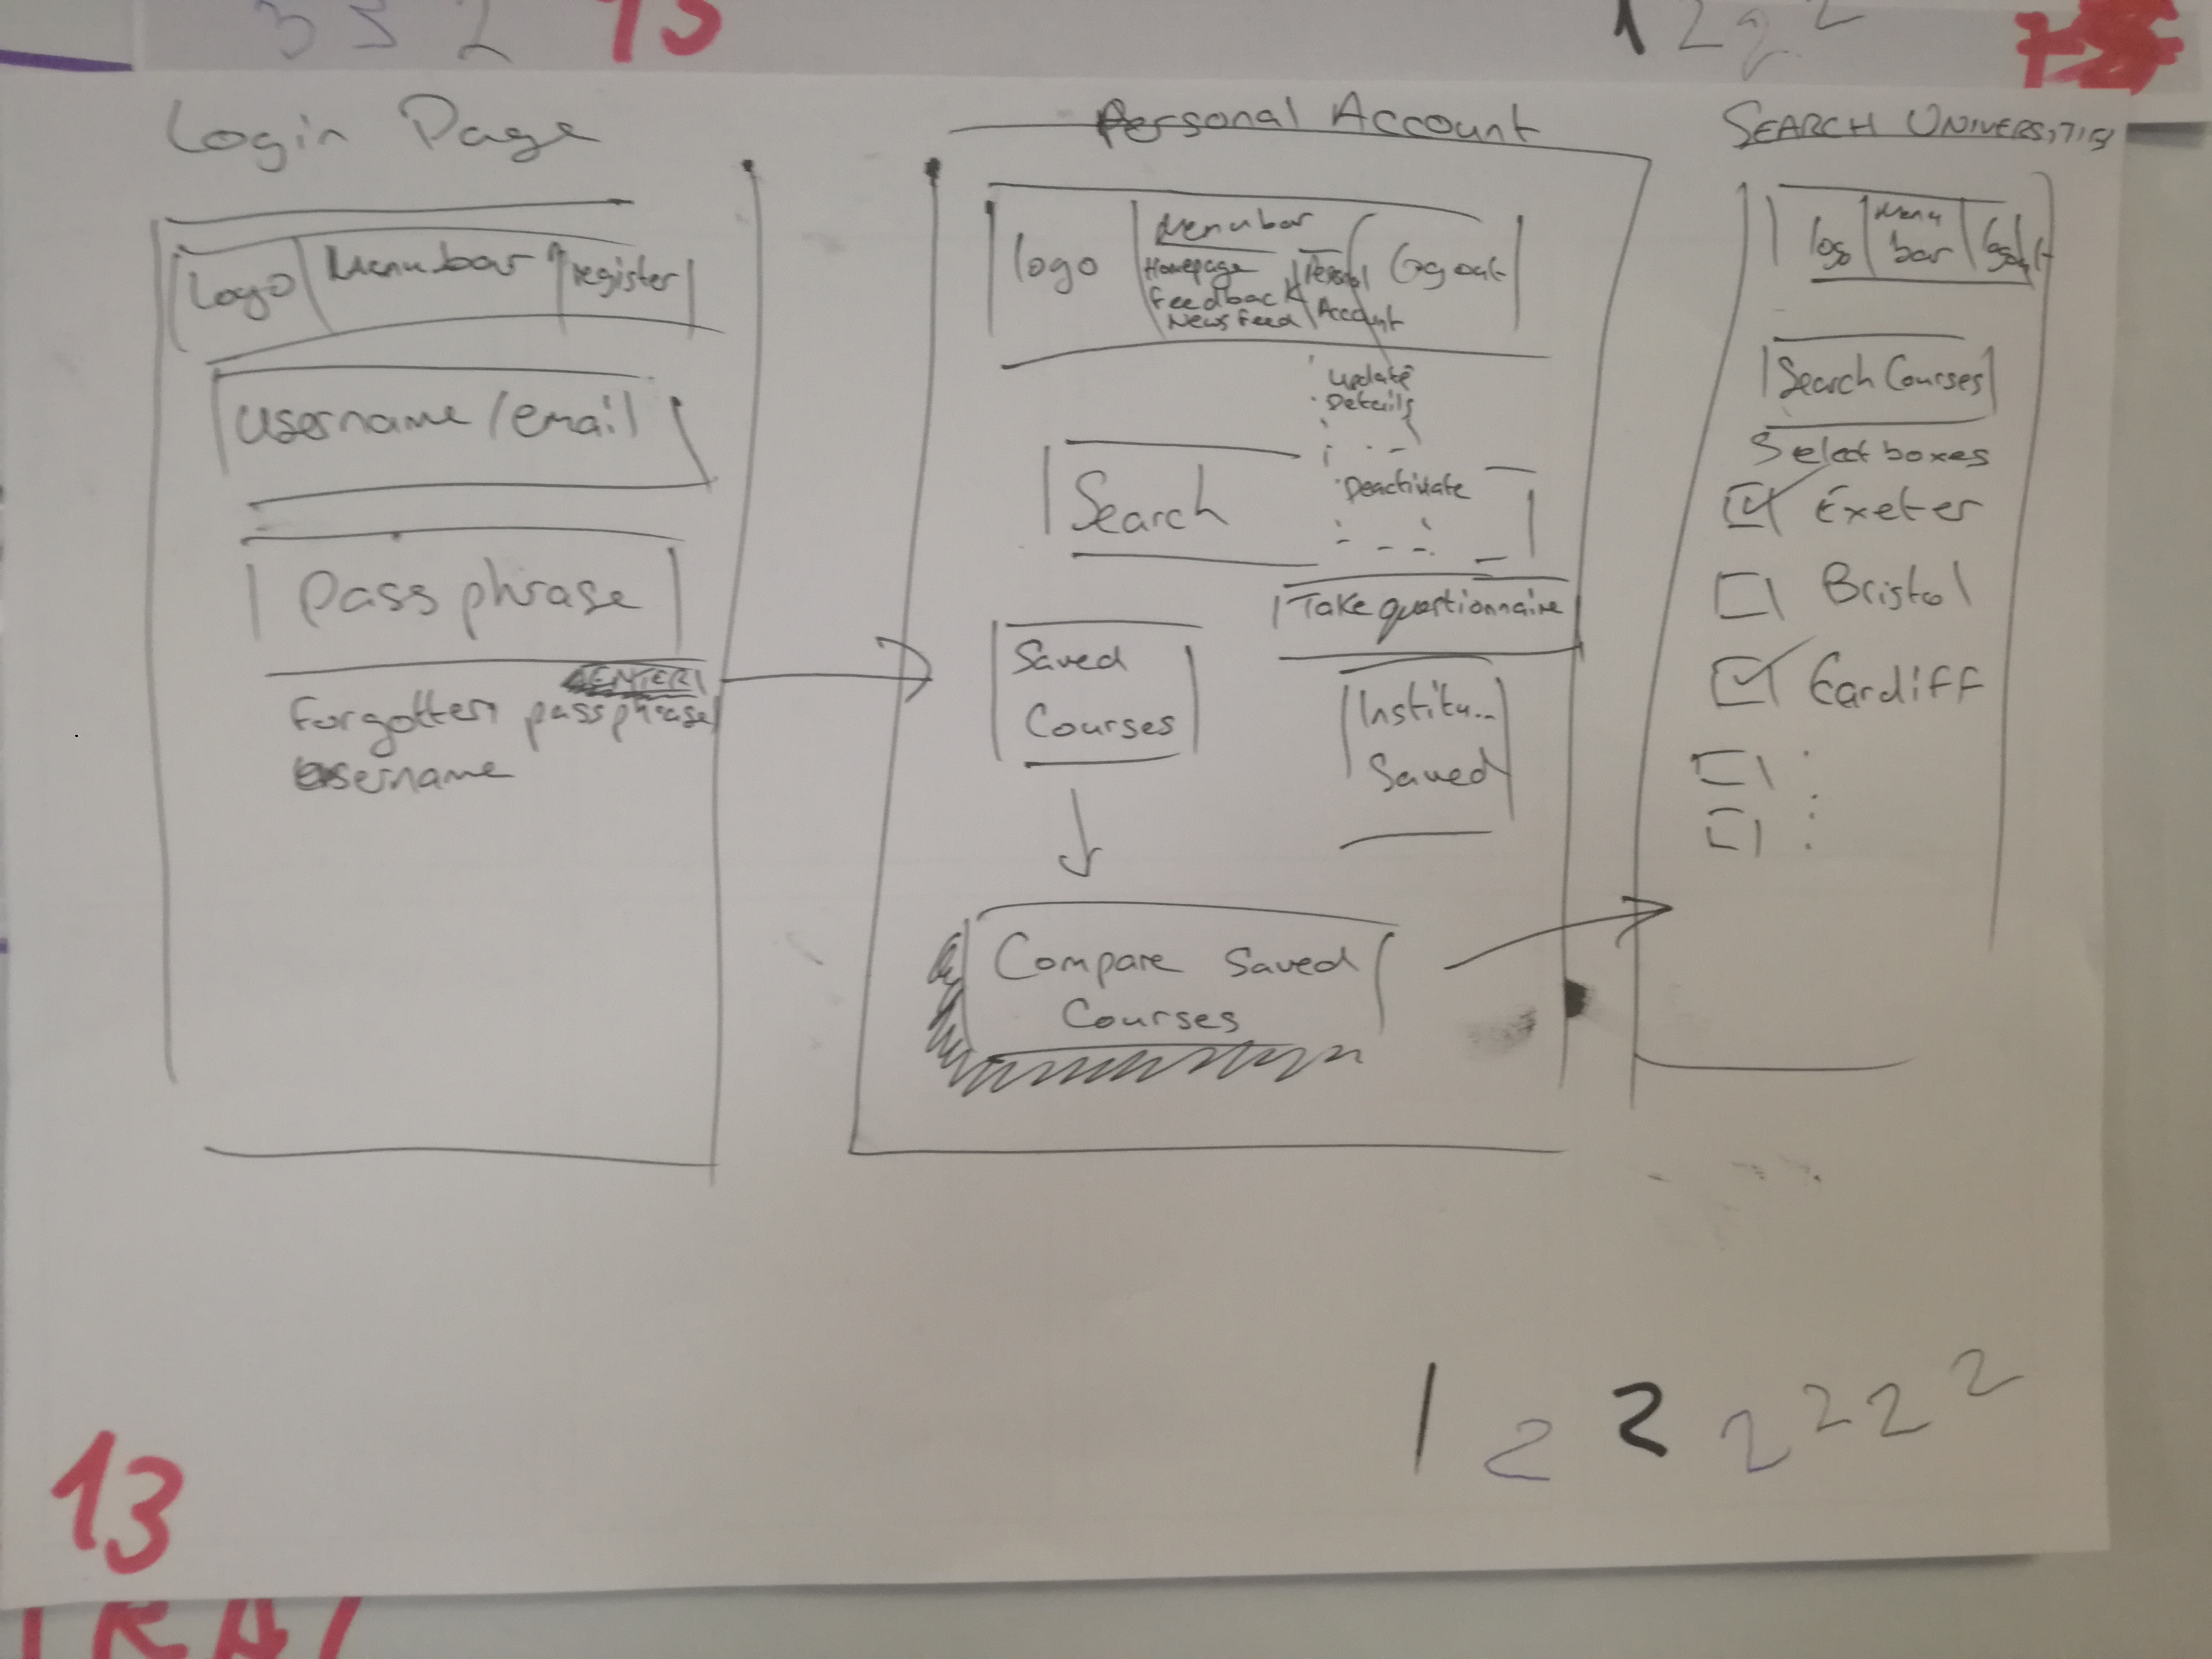 3 3 2 13
1 2 2 2
Login Page
Logo Menubar register
Username/email
Pass phrase
ENTER
Forgotten passphrase/
Username
Personal Account
logo Menubar Logout
Homepage Personal
Feedback Account
Newsfeed
Update
Details
Deactivate
Search
Take questionnaire
Saved
Courses
Institu...
Saved
Compare Saved
Courses
SEARCH UNIVERSITIES
logo Menu bar logout
Search Courses
Select boxes
Exeter
Bristol
Cardiff
1 2 2 2 2 2 2
13